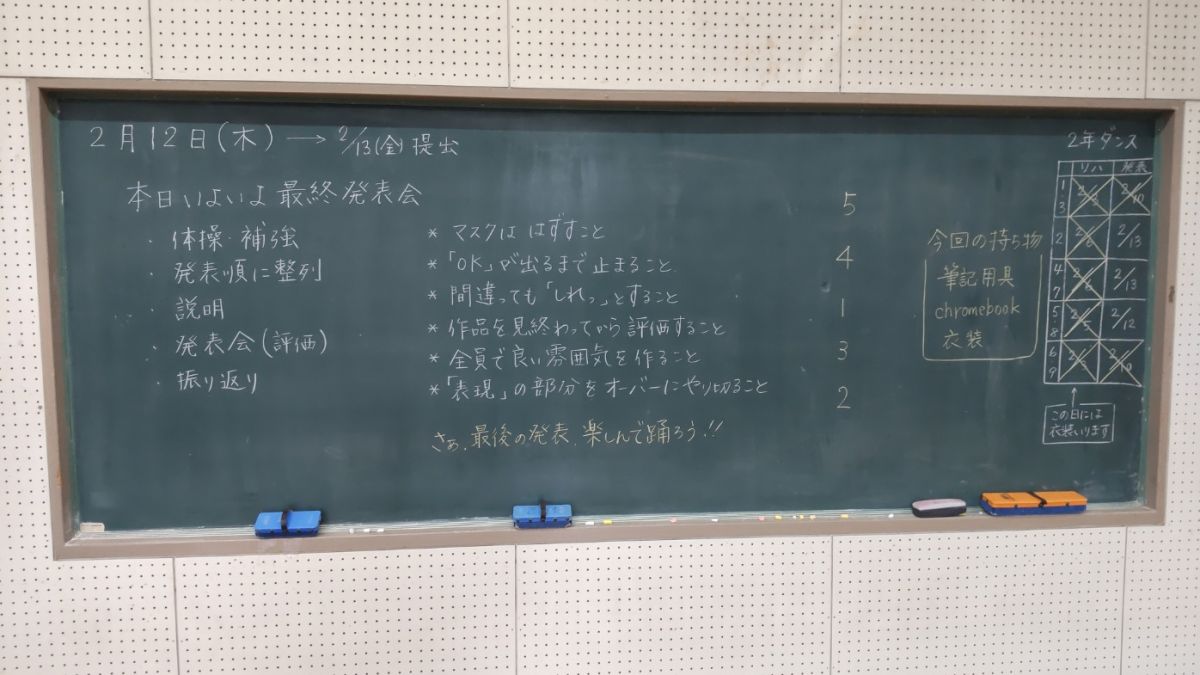 2月12日(木) → 2/13(金)提出
本日いよいよ最終発表会
・体操・補強
・発表順に整列
・説明
・発表会(評価)
・振り返り
* マスクは はずすこと
* 「OK」が出るまで止まること
* 間違っても「しれっ」とすること
* 作品を見終わってから評価すること
* 全員で良い雰囲気を作ること
* 「表現」の部分をオーバーにやり切ること
さぁ、最後の発表、楽しんで踊ろう!!
5
4
1
3
2
今回の持ち物
筆記用具
chromebook
衣装
2年ダンス
リハ 発表
1 3
2 2/6 2/13
4 7 2/6 2/13
5 8 2/5 2/12
6 9
この日には
衣装いります